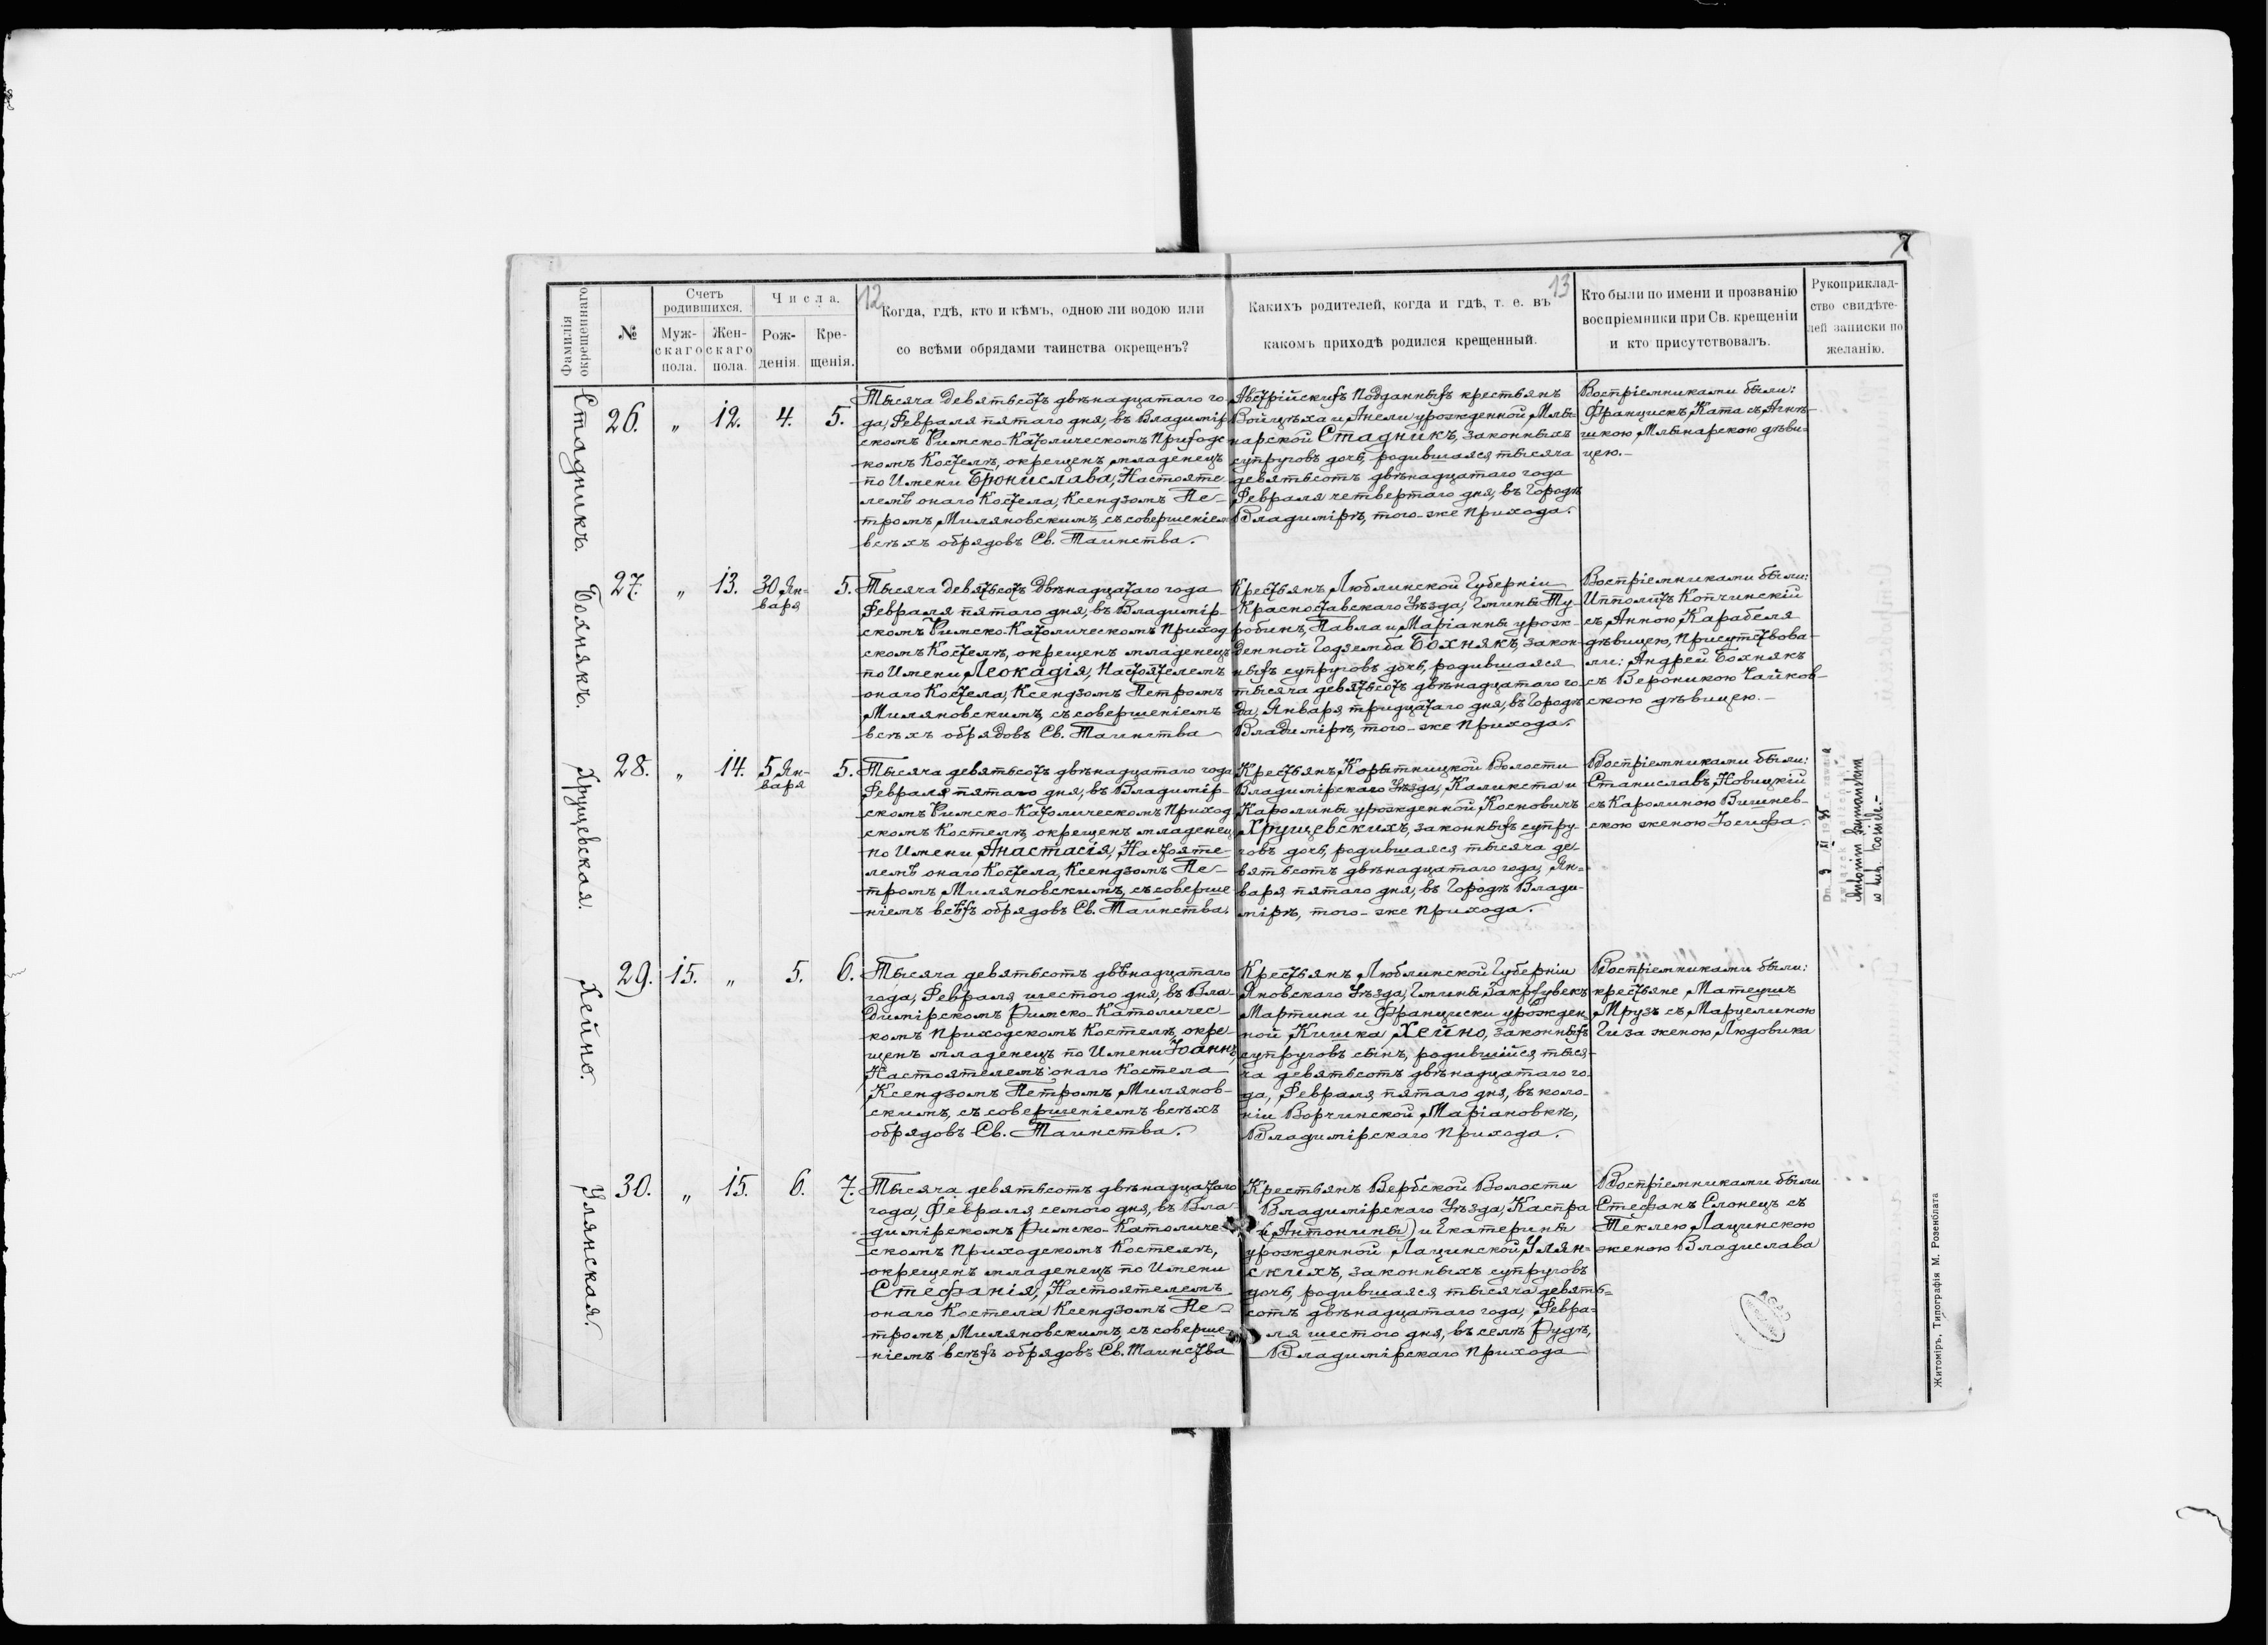 7
12
13
Фамилія окрещеннаго
№
Счетъ родившихся.
Мужскаго пола.
Женскаго пола.
Числа.
Рожденія.
Крещенія.
Когда, гдѣ, кто и кѣмъ, одною ли водою или
со всѣми обрядами таинства окрещенъ?
Какихъ родителей, когда и гдѣ, т. е. въ
какомъ приходѣ родился крещенный.
Кто были по имени и прозванію
воспріемники при Св. крещеніи
и кто присутствовалъ.
Рукоприклад-
ство свидѣте-
лей записки по
желанію.
Стадникъ.
26. „ 12. 4. 5.
Тысяча девятьсотъ двѣнадцатаго го-
да, Февраля пятаго дня, въ Владимір-
скомъ Римско-Католическомъ Приходс-
комъ Костелѣ, окрещенъ младенецъ
по Имени Бронислава, Настояте-
лемъ онаго Костела, Ксендзомъ Пе-
тромъ Миляновскимъ, съ совершеніем
всѣхъ обрядовъ Св. Таинства.
Австрійскихъ Подданныхъ крестьянъ
Войцѣха и Анели урожденной Млы-
нарской Стадникъ, законныхъ
супруговъ дочь, родившаяся тысяча
девятьсотъ двѣнадцатаго года
Февраля четвертаго дня, въ Городѣ
Владимірѣ, того-же Прихода.
Воспріемниками были:
Францискъ Ката съ Агнѣ-
шкою Млынарскою дѣви-
цею.-
Бохнякъ.
27. „ 13. 30 Ян-
варя 5.
Тысяча девятьсотъ двѣнадцатаго года
Февраля пятаго дня, въ Владимір-
скомъ Римско-Католическомъ Приход
скомъ Костелѣ, окрещенъ младенецъ
по Имени Леокадія, Настоятелемъ
онаго Костела, Ксендзомъ Петромъ
Миляновскимъ, съ совершеніемъ
всѣхъ обрядовъ Св. Таинства
Крестьянъ Люблинской Губерніи
Красноставскаго Уѣзда, Гмины Ту-
робинъ, Павла и Маріанны урож-
денной Годземба Бохнякъ, закон-
ныхъ супруговъ дочь, родившаяся
тысяча девятьсотъ двѣнадцатаго го-
да, Января тридцатаго дня, въ Городѣ
Владимірѣ, того-же Прихода.
Воспріемниками были:
Ипполитъ Копчинскій
съ Анною Карабеля
дѣвицею, Присутствова-
ли: Андрей Бохнякъ
съ Вероникою Чайков-
скою дѣвицею.-
Хрущевская.
28. „ 14. 5 Ян-
варя 5.
Тысяча девятьсотъ двѣнадцатаго года
Февраля пятаго дня, въ Владимір-
скомъ Римско-Католическомъ Приход
скомъ Костелѣ, окрещенъ младенец
по Имени Анастасія, Настояте-
лемъ онаго Костела, Ксендзомъ Пе-
тромъ Миляновскимъ, съ соверше-
ніемъ всѣхъ обрядовъ Св. Таинства.
Крестьянъ Корытницкой Волости
Владимірскаго Уѣзда, Каликста и
Каролины урожденной Косновичъ
Хрущевскихъ, законныхъ супру-
говъ дочь, родившаяся тысяча де-
вятьсотъ двѣнадцатаго года, Ян-
варя пятаго дня, въ Городѣ Влади-
мірѣ, того-же Прихода.
Воспріемниками были:
Станиславъ Новицкій
съ Каролиною Вишнев-
скою женою Іосифа.
Dn. 9 XI 1935 r. zawarła
związek małżeński
Antonim Szymanskim
w tut. kościele.-
Хейно.
29. 15. „ 5. 6.
Тысяча девятьсотъ двѣнадцатаго
года, Февраля, шестого дня, въ Вла-
димірскомъ Римско-Католичес-
комъ Приходскомъ Костелѣ, окре-
щенъ младенецъ по Имени Іоаннъ,
Настоятелемъ онаго Костела
Ксендзомъ Петромъ Милянов-
скимъ, съ совершеніемъ всѣхъ
обрядовъ Св. Таинства.
Крестьянъ Люблинской Губерніи
Яновскаго Уѣзда, Гмины Закржувекъ
Мартина и Франциски урожден-
ной Кишка Хейно, законныхъ
супруговъ сынъ, родившійся тыся-
ча девятьсотъ двѣнадцатаго го-
да, Февраля, пятаго дня, въ коло-
ніи Ворчинской Маріановкѣ,
Владимірскаго Прихода.
Воспріемниками были:
крестьяне Матеушъ
Мрузъ съ Марцелиною
Гиза женою Людовика
Улянская.
30. „ 15. 6. 7.
Тысяча девятьсотъ двѣнадцатаго
года, Февраля семого дня, въ Вла-
димірскомъ Римско-Католиче-
скомъ Приходскомъ Костелѣ,
окрещенъ младенецъ по Имени
Стефанія, Настоятелемъ
онаго Костела Ксендзомъ Пе-
тромъ Миляновскимъ, съ соверше-
ніемъ всѣхъ обрядовъ Св. Таинства
Крестьянъ Вербской Волости
Владимірскаго Уѣзда, Каспра
(Антонины) и Екатерины
урожденной Лацинской Улян-
скихъ, законныхъ супруговъ
дочь, родившаяся тысяча девять-
сотъ двѣнадцатаго года, Февра-
ля шестого дня, въ селѣ Рудѣ,
Владимірскаго Прихода
Воспріемниками были
Стефанъ Слонецъ съ
Теклею Лацинскою
женою Владислава
AGAD
Житоміръ, Типографія М. Розенблата